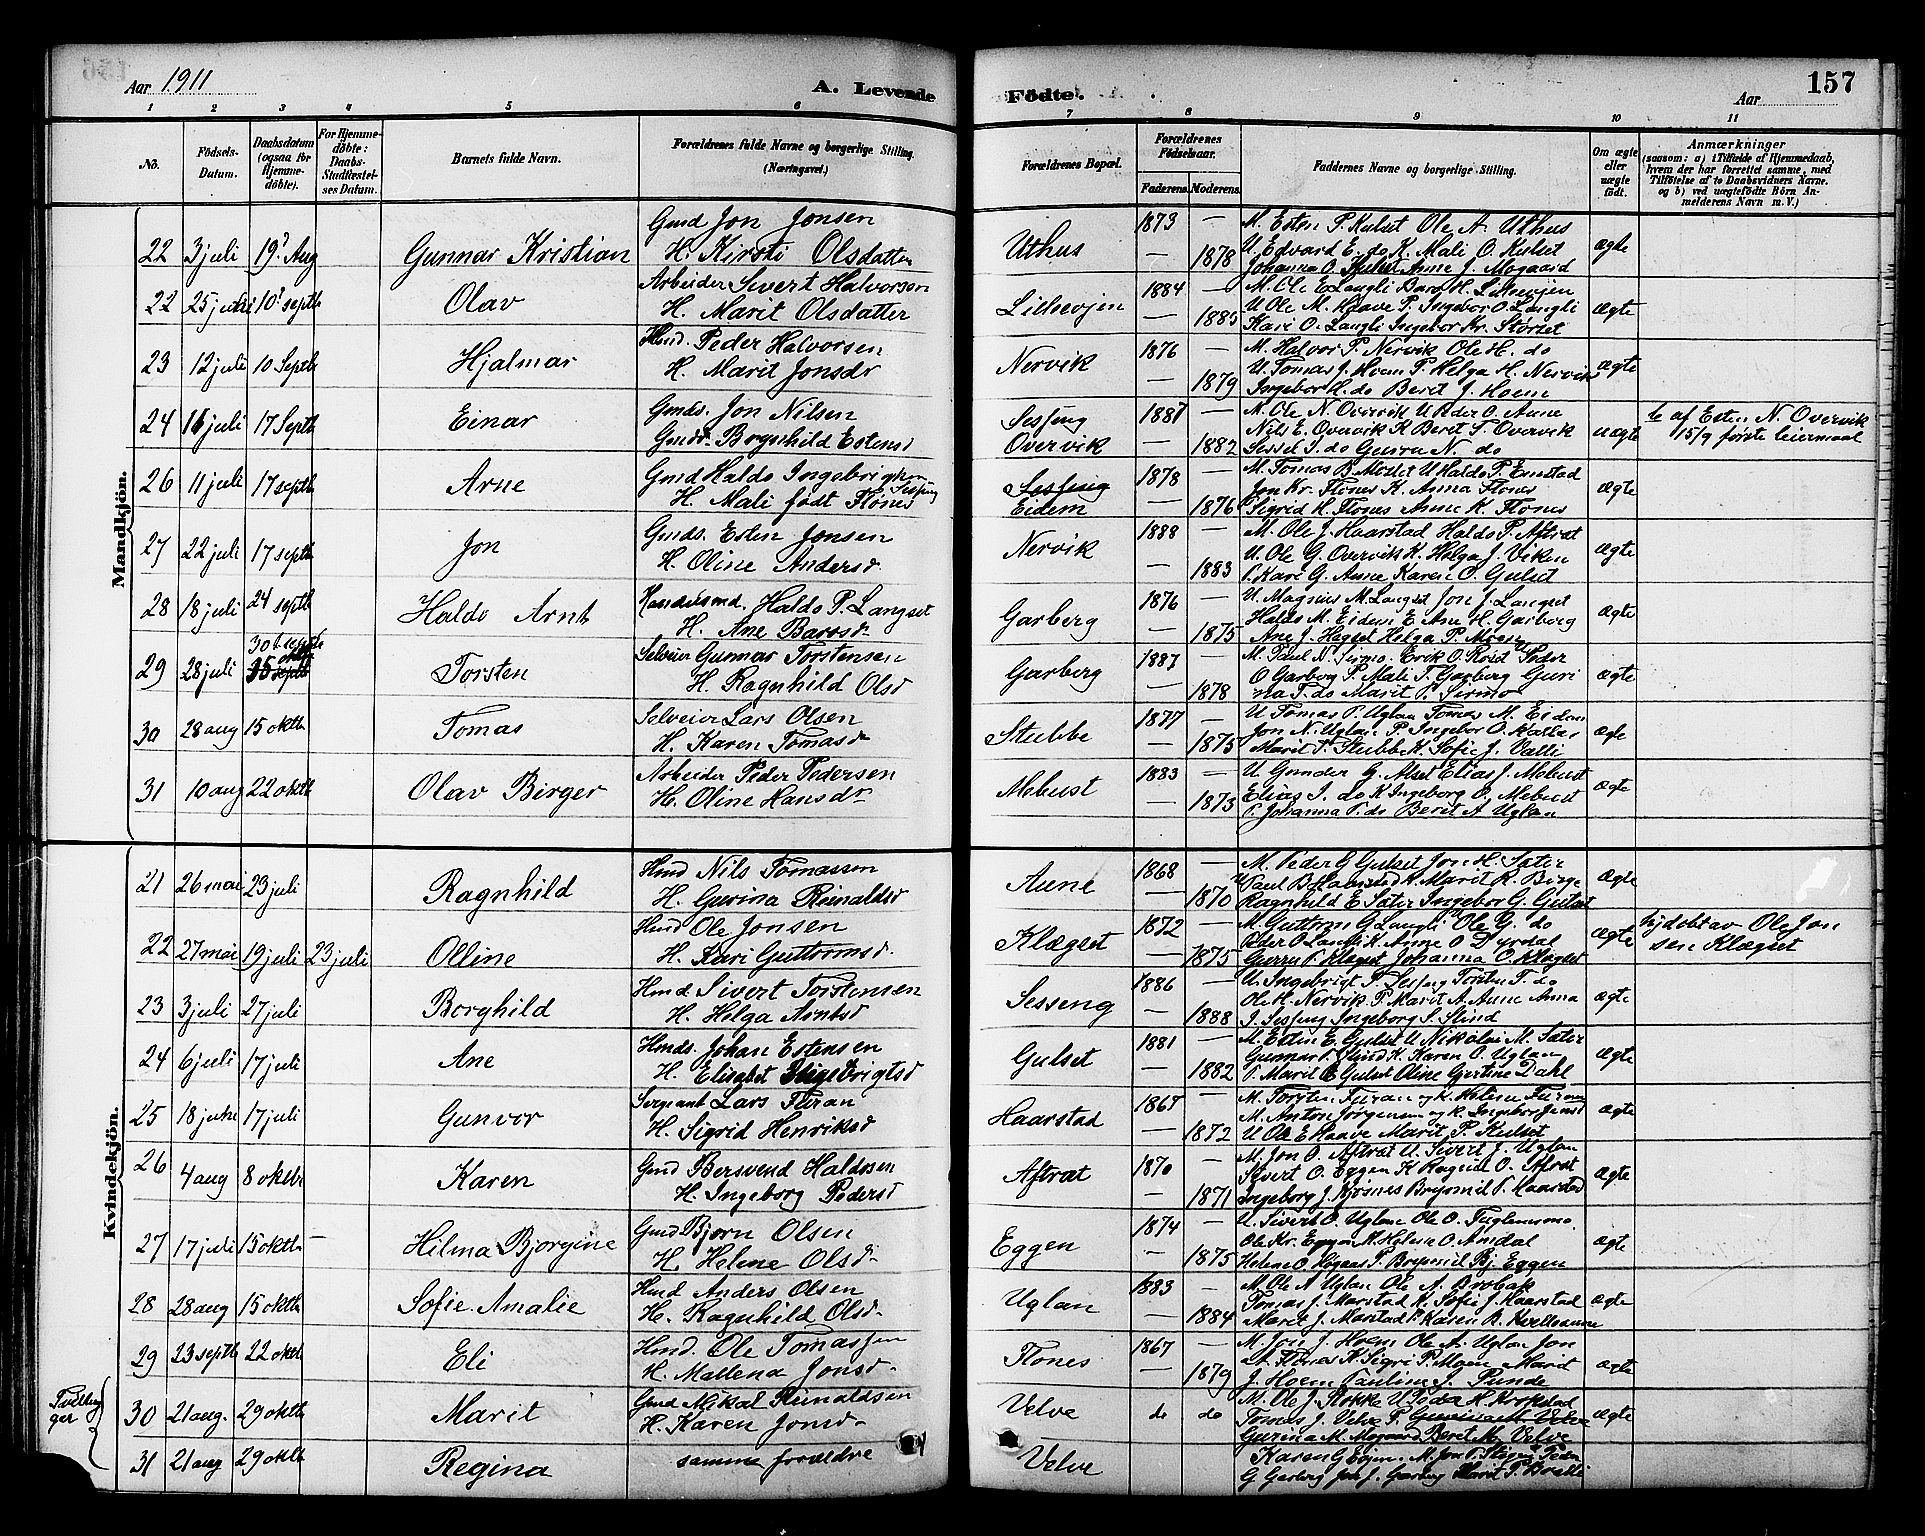 Aar 1911
A. Levende
Födte.
Aar
157
1 2 3 4 5 6 7 8 9 10 11
No.
Födsels-Datum.
Daabsdatum (ogsaa for Hjemme-döbte).
For Hjemme-döbte: Daabs-Stadfæstel-ses Datum.
Barnets fulde Navn.
Forældrenes fulde Navne og borgerlige Stilling. (Næringsvei.)
Forældrenes Bopæl.
Forældrenes Födselsaar.
Faderens. Moderens.
Faddernes Navne og borgerlige Stilling.
Om ægte eller uægte födt.
Anmærkninger (saasom: a) i Tilfælde af Hjemmedaab, hvem der har forrettet samme, med Tilföielse af to Daabsvidners Navne. og b) ved uægtefödte Börn An-melderens Navn m. V.)
Mandkjön.
22 3 juli 19 Aug Gunnar Kristian Gmd Jon Jonsen H. Kirsti Olsdatter Uthus 1873 — — 1878 M. Esten P. Kulset Ole A. Uthus
U. Edvard E. do K. Mali O. Kulset
Johanna O. Kulset Anne J. Mogaard ægte
22 25 juli 10 septb Olav Arbeider Sivert Halvorsen H. Marit Olsdatter Lillevjen 1884 — — 1885 M. Ole E Langli Baro H. Lillevjen
U Ole M. Haave P. Ingebor O Langli
Kari O. Langli Ingebor Kr. Störset ægte
23 12 juli 10 Septb Hjalmar Hmd. Peder Halvorsen H. Marit Jonsdr Nervik 1876 — — 1879 M. Halvor P. Nervik Ole H. do
U. Tomas J. Hoem P. Helga H. Nervik
Ingebor H. do Berit J. Hoem ægte
24 11 juli 17 Septb Einar Gmds. Jon Nilsen Gmdr. Borghild Estensd Sesseng Overvik 1887 — — 1882 M. Ole N. Overvik U Peder O. Aune
Nils E. Overvik K Beret T. Overvik
Sessel I. do Gurra N. do uægte b af Esten N. Overvik
15/9 første leiermaal
26 11 juli 17 septb Arne Gmd Haldo Ingebrigtsen Sesseng H. Mali født Flones Eidem 1878 — — 1876 M. Tomas B. Moslet U Haldo P. Emstad
Jon Kr. Flones K. Anna Flones
P Sigrid K. Flones Anne K. Flones ægte
27 22 juli 17 septb Jon Gmds. Esten Jonsen H. Oline Andersd. Nervik 1888 — — 1883 M. Ole J. Haarstad Haldo P. Aftrat
U. Ole G. Overvik K. Helga J. Viken
P. Kari G. Aune Karen O. Gulset ægte
28 18 juli 24 septb Haldo Arnt Handelsmd. Haldo P. Langset H. Ane Barosdr. Garberg 1876 — — 1875 U. Magnus M. Langset Jon J. Langset
Haldo M. Eidem E Ane H. Garberg
Ane J. Hegset Helga P. Moen ægte
29 28 juli 15 oktb Torsten Selveier Gunnar Torstensen H. Ragnhild Olsd Garberg 1887 — — 1878 M. Paul N. Sirmo. Erik O. Rost U Peder
O Garberg P. Mali T. Garberg Guri
na T. do Marit P. Sirmo ægte
30 28 aug 15 oktb Tomas Selveier Lars Olsen H. Karen Tomasdr Stubbe 1877 — — 1875 U Tomas P. Uglan Tomas M. Eidem
Jon N. Uglan P. Ingebor O. Kallar
Marit T. Stubbe K. Sofie J. Valli ægte
31 10 aug 22 oktb Olav Birger Arbeider Peder Pedersen H. Oline Hansdr Mebust 1883 — — 1873 U Gunder G. Alset Elias J. Mebust
Elias I. do K Ingeborg O. Mebust
P. Johanna P. do Beret A Uglan ægte
Kvindekjön.
21 26 mai 23 juli Ragnhild Hmd Nils Tomassen H. Gurina Reinaldsd Aune 1868 — — 1870 M. Peder G Gulset Jon H. Sæter
U Paul B Haarstad K. Marit K. Birge
Ragnhild E Sæter Ingebor G. Gulset ægte
22 27 mai 19 juli 23 juli Olline Hmd Ole Jonsen H. Kari Guttormsd. Klægset 1872 — — 1875 M. Guttorm G Langli U Ole G. do
Peder O Langli K. Anne O Dyrdal
Gurru P. Klægset Johanna O. Klægset ægte hjdøbt av Ole Jon
sen Klægset
23 3 juli 27 juli Borghild Hmd Sivert Torstensen H. Helga Arntsd Sesseng 1886 — — 1888 U. Ingebrigt T. Sesseng Torsten T. do
Ole H. Nervik P Marit A. Aune Anna
J. Sesseng Ingeborg S. Slind ægte
24 6 juli 17 juli Ane Hmds. Johan Estensen H. Elisabet Ingebrigtsd Gulset 1881 — — 1882 M. Esten E. Gulset U Nikolai M. Sæter
Gunnar P. Slind K. Karen O. Uglan
P. Marit E Gulset Oline Gjertine Dahl ægte
25 18 juni 17 juli Gunvor Sergeant Lars Furan H. Sigrid Henriksd Haarstad 1867 — — 1872 M. Torsten Furan og K. Helene Furan
M. Anton Jørgensen og K. Ingebor Jensd
U Ole E Haave Marit P. Kulset ægte
26 4 aug 8 oktbr Karen Gmd Bersvend Haldosen H. Ingeborg Pedersd Aftrat 1870 — — 1871 M. Jon O. Aftrat U. Sivert J. Uglan
Sivert O. Eggen K Ragnid O. Aftrat
Ingeborg J. Kjøsnes Brynmil P. Haarstad ægte
27 17 juli 15 oktb — Hilma Bjorgine Gmd Bjørn Olsen H. Helene Olsd. Eggen 1874 — — 1875 U. Sivert O. Uglan Ole O. Fuglemsmo.
Ole Kr. Eggen M. Helena O. Amdal
Helene O. Hogaas P. Brynmil Bj. Eggen ægte
28 28 aug 15 oktb Sofie Amalie Hmd Anders Olsen H. Ragnhild Olsd. Uglan 1883 — — 1884 M. Ole A Uglan Ole A. Brobak
Tomas J. Marstad K. Sofie J. Haarstad
Marit J. Marstad P. Karen R. Kvellomme ægte
29 23 septb 22 oktb Eli Hmd. Ole Tomassen H. Mallena Jonsd. Flones 1867 — — 1879 M. Jon J. Hoem Ole A. Uglan Jon
O. Flones K. Sigri P. Moen Marit
J. Hoem Pauline J. Punde ægte
Tvillinger
30 21 aug. 29 oktb Marit Gmd Mikal Reinaldsen H. Karen Jonsd. Velve do do M. Ole J. Rokke U Peder H. Krokstad
Tomas J. Velve P. Gurina M Velve
Gurina M. Mogaard Beret M. Velve ægte
31 21 aug 29 oktb Regina samme forældre Velve Karen G Evjen. M. Jon P. Steigen Peder
G Garberg Jon J. Garberg Marit P. Brelli